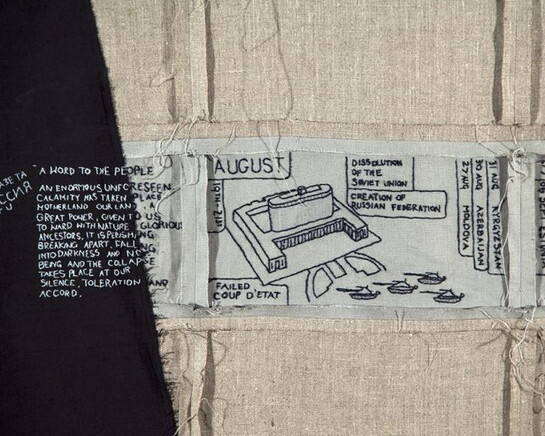 "A WORD TO THE PEOPLE
AN ENORMOUS UNFORESEEN
CALAMITY HAS TAKEN PLACE
MOTHERLAND OUR LAND, A
GREAT POWER, GIVEN TO US
TO WARD WITH NATURE GLORIOUS
ANCESTORS, IT IS PERISHING
BREAKING APART, FALL
INTO DARKNESS AND
BEING AND THE COLLAPSE
TAKES PLACE AT OUR
SILENCE, TOLERATION AND
ACCORD.
AUGUST
19TH-21ST
FAILED
COUP D'ETAT
DISSOLUTION
OF THE
SOVIET UNION
CREATION OF
RUSSIAN FEDERATION
31 AUG KYRGYZSTAN
30 AUG AZERBAIJAN
27 AUG MOLDOVA